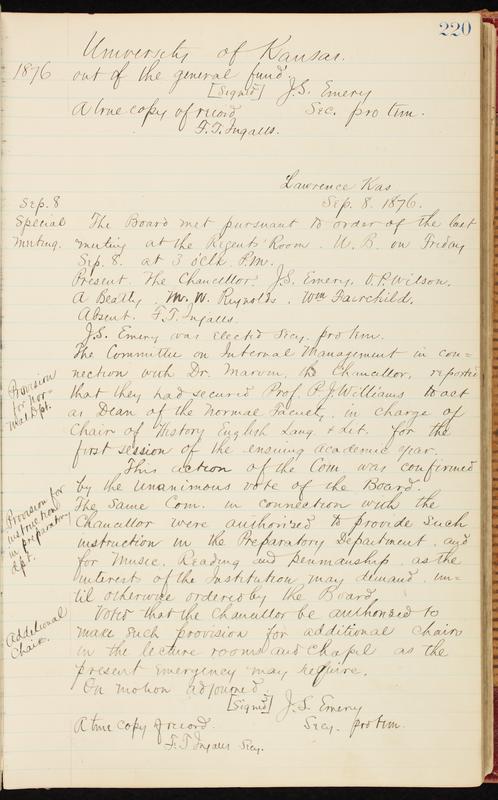 220
University of Kansas.
1876 out of the general fund.
[Signed] J.S. Emery
A true copy of record Sec. pro tem.
F.T. Ingalls.
Lawrence Kas
Sep. 8 Sep. 8. 1876.
Special The Board met pursuant to order of the last
meeting. meeting at the Regents' Room. U.B. on Friday
Sep. 8. at 3 oclk. P.M.
Present. The Chancellor. J.S. Emery. V.P. Wilson.
A Beatty. M.W. Reynolds. Wm Fairchild.
Absent. F.T. Ingalls.
J.S. Emery was elected Secy. pro tem.
The Committee on Internal Management in con=
nection with Dr. Marvin, the Chancellor, reported
Provision that they had secured Prof. P.J. Williams to act
for Nor- as Dean of the Normal Faculty, in charge of
mal Dpt. Chair of History English Lang. & Lit. for the
first session of the ensuing academic year.
This action of the Com was confirmed
by the unanimous vote of the Board.
Provision for The Same Com. in connection with the
instruction Chancellor were authorized to provide such
in preparatory instruction in the Preparatory Department, and
dpt. for Music, Reading and penmanship, as the
interests of the Institution may demand, un=
til otherwise ordered by the Board.
Additional Voted that the Chancellor be authorized to
Chairs. make such provision for additional chairs
in the lecture rooms and chapel as the
present emergency may require.
On motion adjourned.
[Signed] J.S. Emery
A true copy of record. Secy. pro tem.
F.T Ingalls Secy.